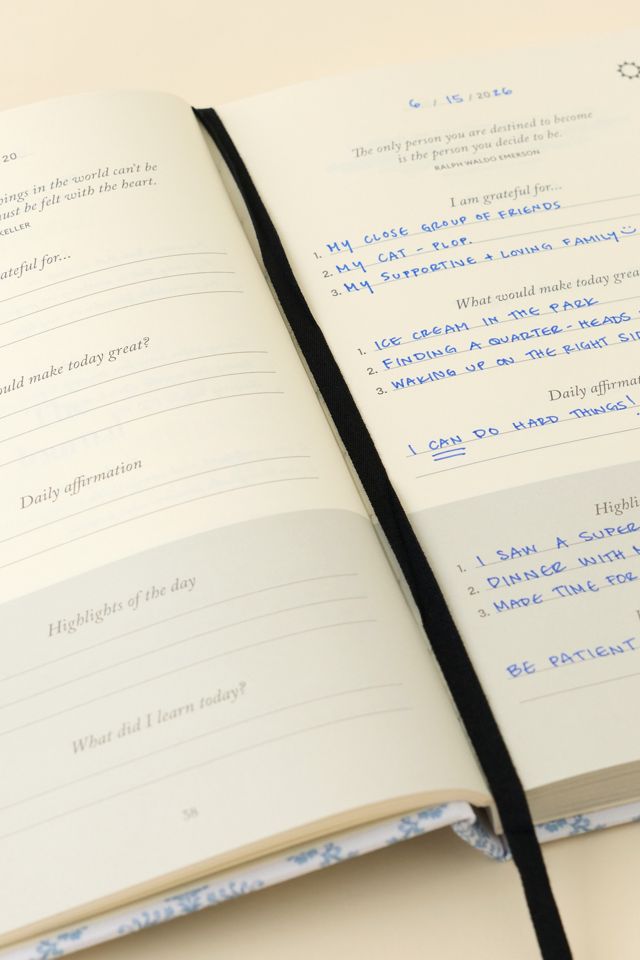 20
ings in the world can't be
ust be felt with the heart.
KELLER
ateful for...
ould make today great?
Daily affirmation
Highlights of the day
What did I learn today?
38
6 / 15 / 2026
The only person you are destined to become
is the person you decide to be.
RALPH WALDO EMERSON
I am grateful for...
1. MY CLOSE GROUP OF FRIENDS
2. MY CAT - PLOP.
3. MY SUPPORTIVE + LOVING FAMILY
What would make today grea
1. ICE CREAM IN THE PARK
2. FINDING A QUARTER - HEADS
3. WAKING UP ON THE RIGHT SID
Daily affirmat
I CAN DO HARD THINGS!
Highli
1. I SAW A SUPER
2. DINNER WITH
3. MADE TIME FOR
BE PATIENT